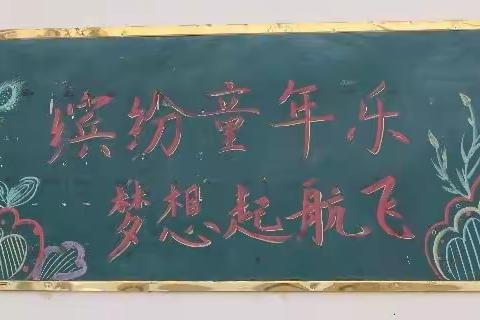 缤纷童年乐
梦想起航飞